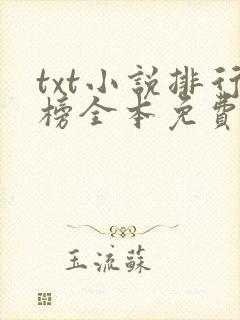 txt小説排行
榜全本免費
玉流蘇